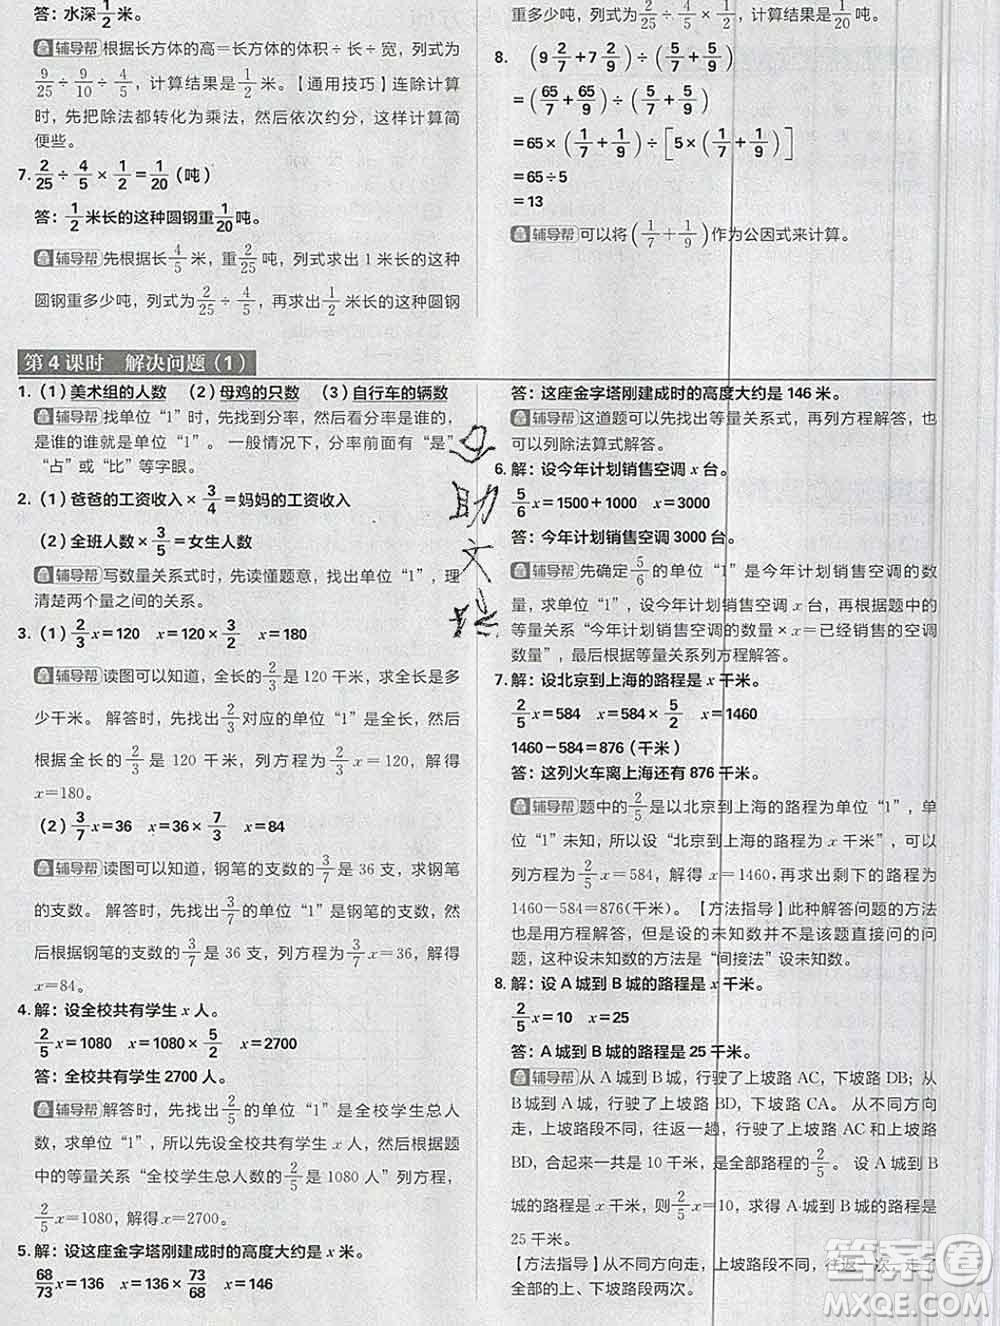 答：水深1/2米。
辅导帮 根据长方体的高=长方体的体积÷长÷宽，列式为
9/25÷9/10÷4/5，计算结果是1/2米。【通用技巧】连除计算
时，先把除法都转化为乘法，然后依次约分，这样计算简
便些。
7. 2/25÷4/5×1/2=1/20（吨）
答：1/2米长的这种圆钢重1/20吨。
辅导帮 先根据4/5米，重2/25吨，列式求出1米长的这种
圆钢重多少吨，列式为2/25÷4/5，再求出1/2米长的这种圆钢
重多少吨，列式为2/25÷4/5×1/2，计算结果是1/20吨。
8. (9 2/7+7 2/9)÷(5/7+5/9)
=(65/7+65/9)÷(5/7+5/9)
=65×(1/7+1/9)÷[5×(1/7+1/9)]
=65÷5
=13
辅导帮 可以将(1/7+1/9)作为公因式来计算。
第4课时 解决问题（1）
1.（1）美术组的人数 （2）母鸡的只数 （3）自行车的辆数
辅导帮 找单位“1”时，先找到分率，然后看分率是谁的，
是谁的谁就是单位“1”。一般情况下，分率前面有“是”
“占”或“比”等字眼。
2.（1）爸爸的工资收入×3/4=妈妈的工资收入
（2）全班人数×3/5=女生人数
辅导帮 写数量关系式时，先读懂题意，找出单位“1”，理
清楚两个量之间的关系。
3.（1）2/3x=120 x=120×3/2 x=180
辅导帮 读图可以知道，全长的2/3是120千米，求全长是多
少千米。解答时，先找出2/3对应的单位“1”是全长，然后
根据全长的2/3是120千米，列方程为2/3x=120，解得
x=180。
（2）3/7x=36 x=36×7/3 x=84
辅导帮 读图可以知道，钢笔的支数的3/7是36支，求钢笔
的支数。解答时，先找出3/7的单位“1”是钢笔的支数，然
后根据钢笔的支数的3/7是36支，列方程为3/7x=36，解得
x=84。
4. 解：设全校共有学生x人。
2/5x=1080 x=1080×5/2 x=2700
答：全校共有学生2700人。
辅导帮 解答时，先找出2/5的单位“1”是全校学生总人
数，求单位“1”，所以先设全校共有学生x人，然后根据题
中的等量关系“全校学生总人数的2/5是1080人”列方程，
2/5x=1080，解得x=2700。
5. 解：设这座金字塔刚建成时的高度大约是x米。
68/73x=136 x=136×73/68 x=146
答：这座金字塔刚建成时的高度大约是146米。
辅导帮 这道题可以先找出等量关系式，再列方程解答，也
可以列除法算式解答。
6. 解：设今年计划销售空调x台。
5/6x=1500+1000 x=3000
答：今年计划销售空调3000台。
辅导帮 先确定5/6的单位“1”是今年计划销售空调的数
量，求单位“1”，设今年计划销售空调x台，再根据题中的
等量关系“今年计划销售空调的数量×x=已经销售的空调
数量”，最后根据等量关系列方程解答。
7. 解：设北京到上海的路程是x千米。
2/5x=584 x=584×5/2 x=1460
1460-584=876（千米）
答：这列火车离上海还有876千米。
辅导帮 题中的2/5是以北京到上海的路程为单位“1”，单
位“1”未知，所以设“北京到上海的路程为x千米”，列方
程为2/5x=584，解得x=1460，再求出剩下的路程为
1460-584=876（千米）。【方法指导】此种解答问题的方法
也是用方程解答，但是设的未知数并不是该题直接问的问
题，这种设未知数的方法是“间接法”设未知数。
8. 解：设A城到B城的路程是x千米。
2/5x=10 x=25
答：A城到B城的路程是25千米。
辅导帮 从A城到B城，行驶了上坡路AC，下坡路DB；从
B城到A城，行驶了上坡路BD，下坡路CA。从不同方向
走，上坡路段不同，往返一趟，行驶了上坡路AC和上坡路
BD，合起来一共是10千米，是全部路程的2/5。设A城到B
城的路程是x千米，则2/5x=10，求得A城到B城的路程是
25千米。
【方法指导】从不同方向走，上坡路段不同，往返一次，走了
全部的上、下坡路段两次。
答案圈
MXQE.COM